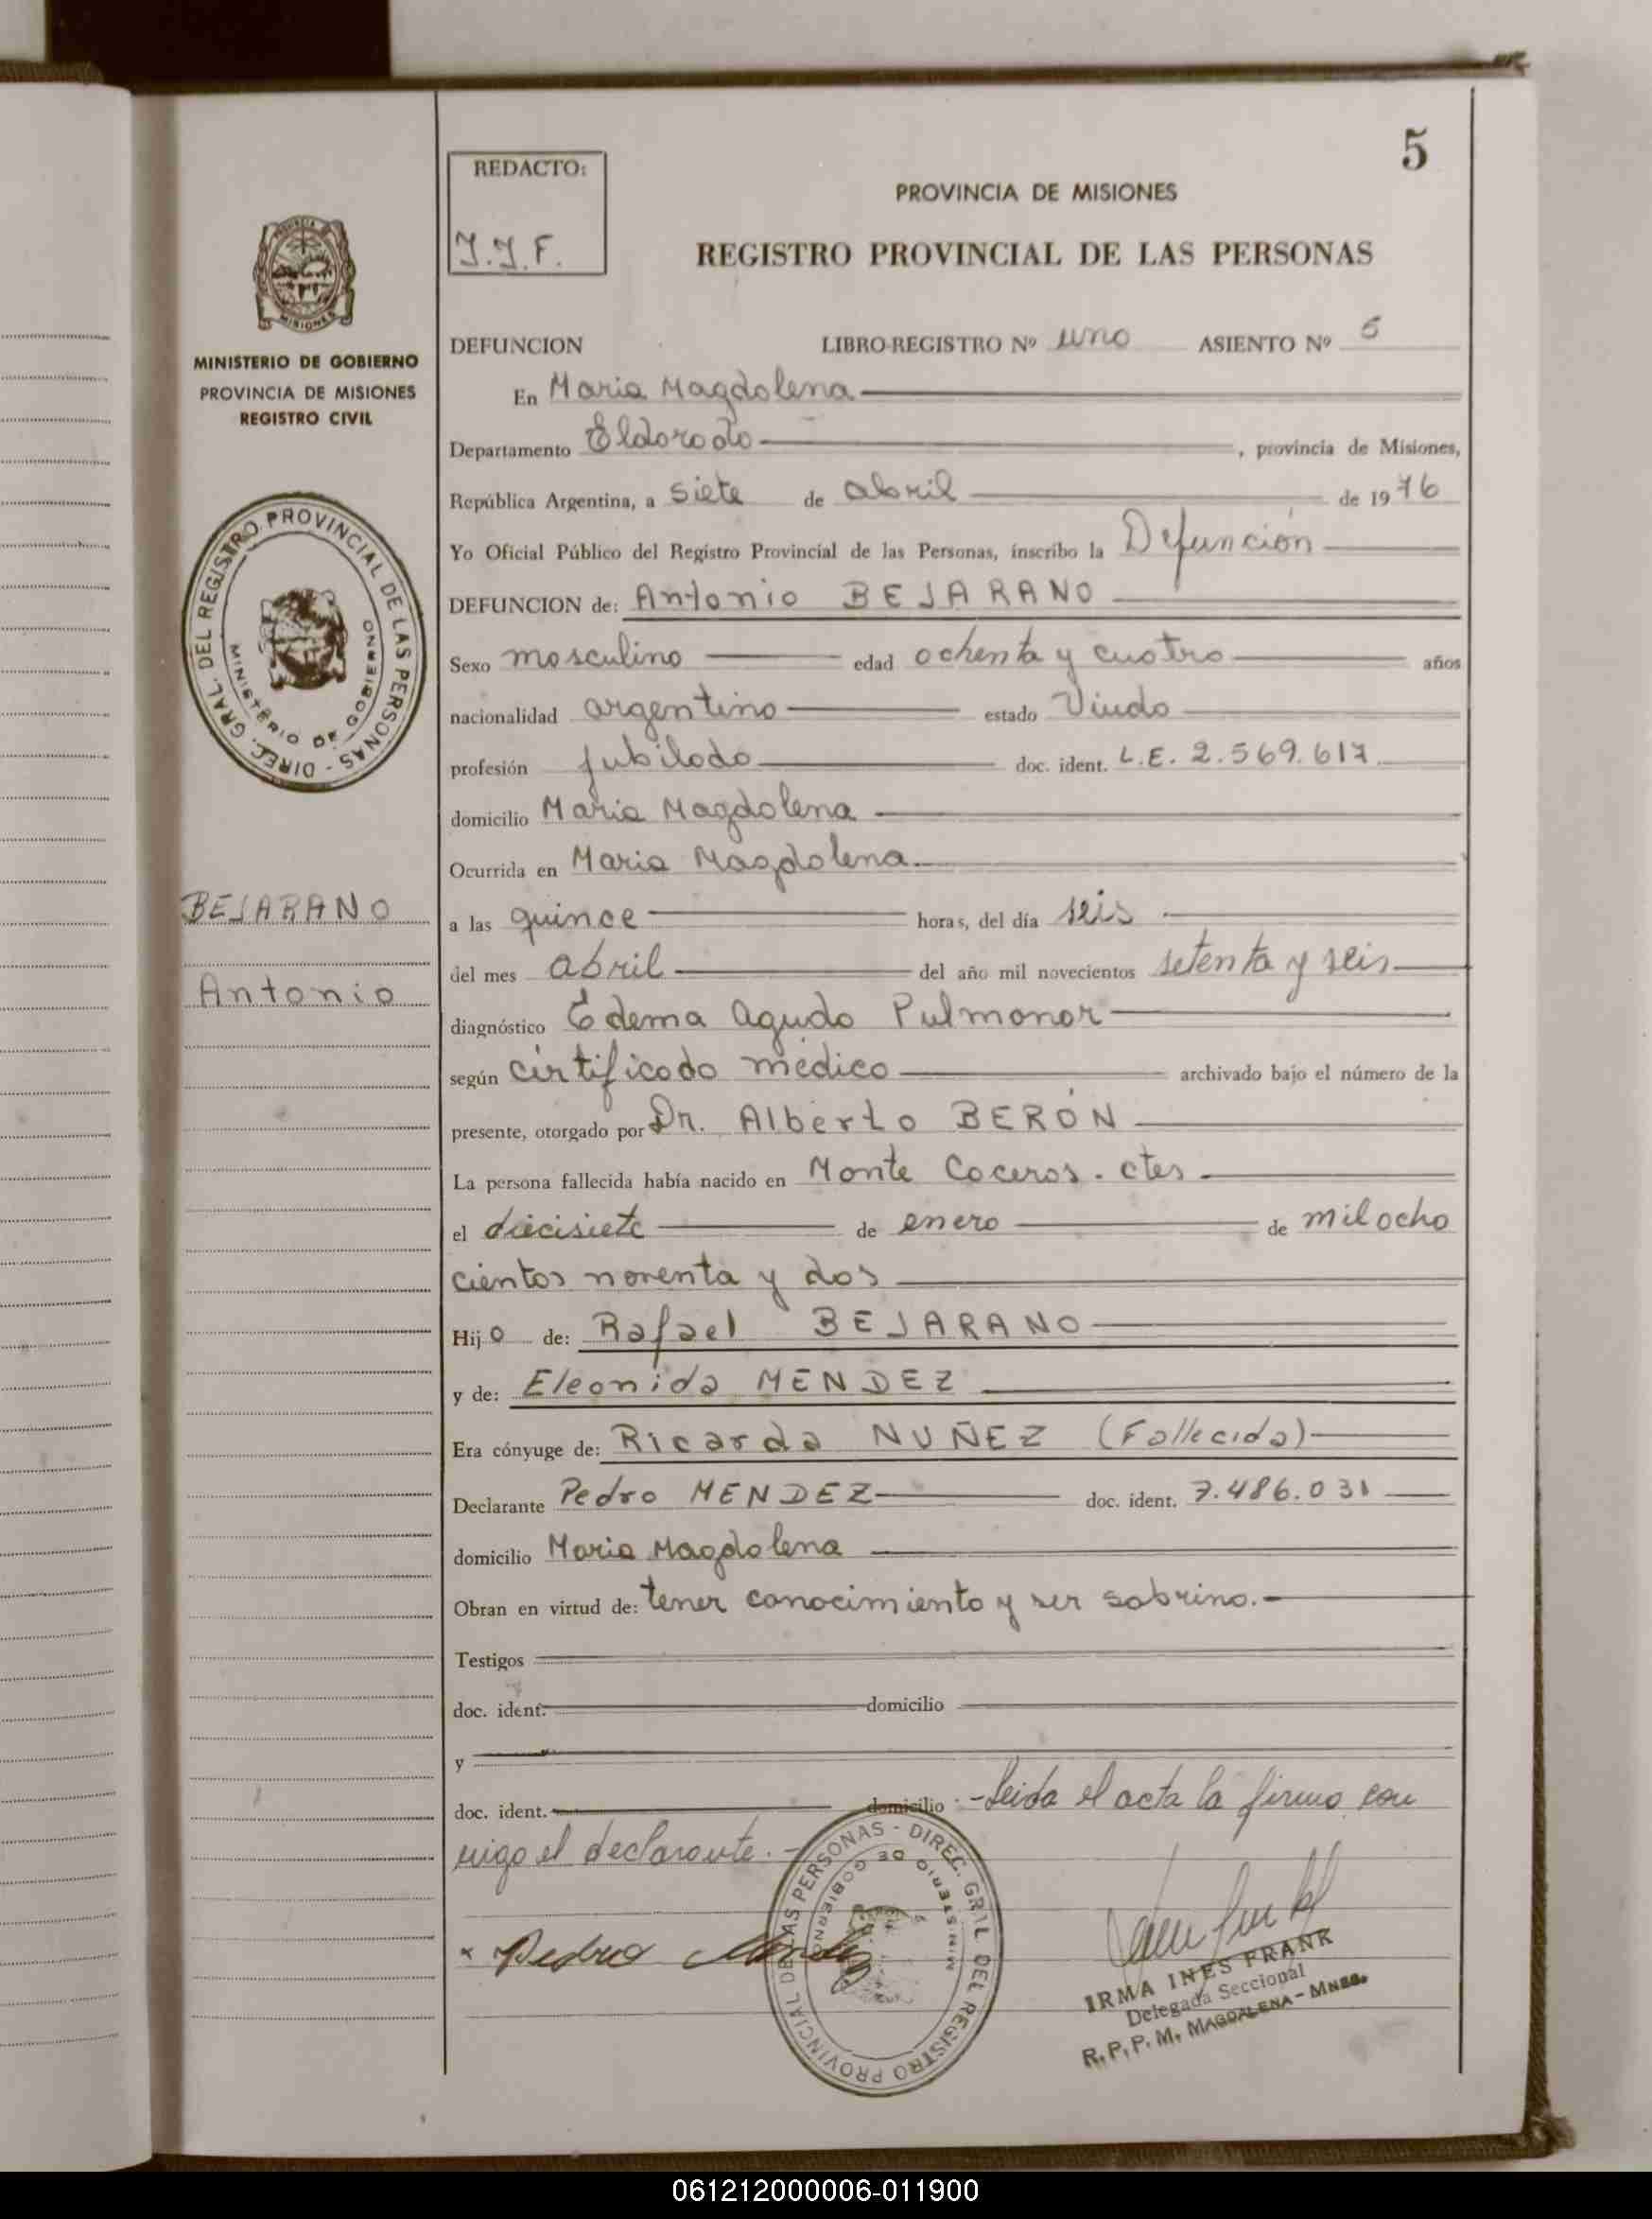 5
REDACTO:
J.J.F.
PROVINCIA DE MISIONES
REGISTRO PROVINCIAL DE LAS PERSONAS
PROVINCIA
MISIONES
MINISTERIO DE GOBIERNO
PROVINCIA DE MISIONES
REGISTRO CIVIL
DIREC. GRAL. DEL REGISTRO PROVINCIAL DE LAS PERSONAS -
MINISTERIO DE GOBIERNO
BEJARANO
Antonio
DEFUNCION LIBRO-REGISTRO Nº uno ASIENTO Nº 5
En Maria Magdalena
Departamento Eldorado , provincia de Misiones,
República Argentina, a siete de abril de 1976
Yo Oficial Público del Registro Provincial de las Personas, inscribo la Defunción
DEFUNCION de: Antonio BEJARANO
Sexo masculino edad ochenta y cuatro años
nacionalidad argentino estado Viudo
profesión jubilado doc. ident. L.E. 2.569.617
domicilio Maria Magdalena
Ocurrida en Maria Magdalena.
a las quince horas, del día seis
del mes abril del año mil novecientos setenta y seis
diagnóstico Edema Agudo Pulmonar
según certificado médico archivado bajo el número de la
presente, otorgado por Dr. Alberto BERÓN
La persona fallecida había nacido en Monte Caceros. ctes
el diecisiete de enero de mil ocho
cientos noventa y dos
Hijo de: Rafael BEJARANO
y de: Eleonida MENDEZ
Era cónyuge de: Ricarda NUÑEZ (Fallecida)
Declarante Pedro MENDEZ doc. ident. 7.486.031
domicilio Maria Magdalena
Obran en virtud de: tener conocimiento y ser sobrino.-
Testigos
doc. ident. domicilio
y
doc. ident. domicilio :-Leida el acta la firma con
migo el declarante.-
DIREC. GRAL. DEL REGISTRO PROVINCIAL DE LAS PERSONAS -
MINISTERIO DE GOBIERNO
x Pedro Mendez
IRMA INES FRANK
Delegada Seccional
R. P. P. M. MAGDALENA - MNES.
061212000006-011900